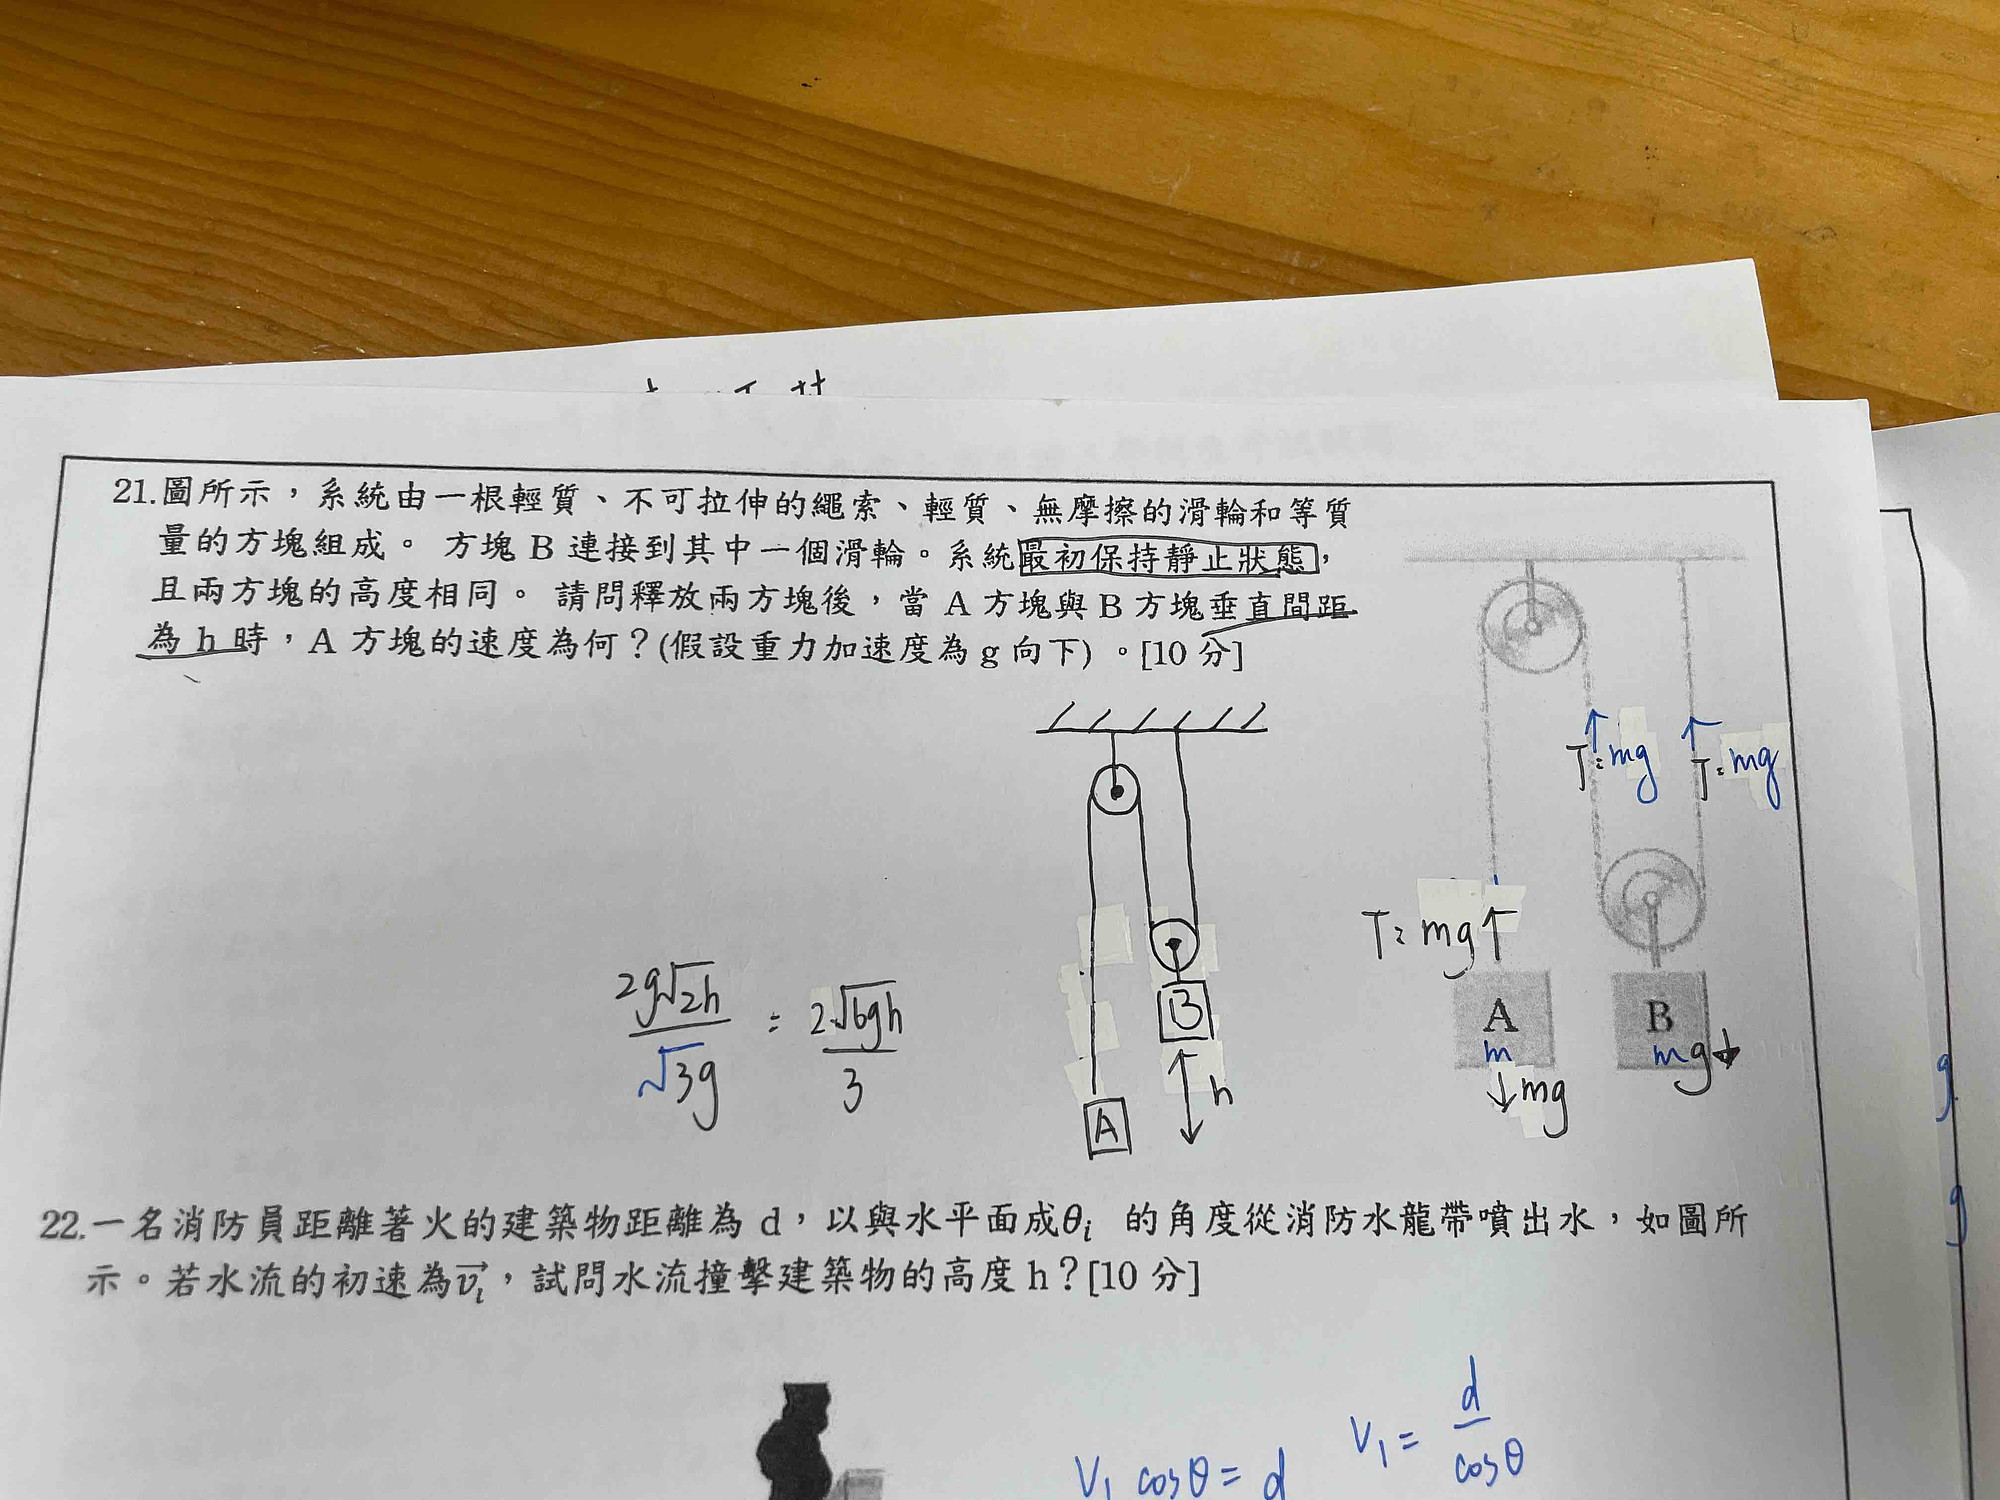 21.圖所示，系統由一根輕質、不可拉伸的繩索、輕質、無摩擦的滑輪和等質
量的方塊組成。 方塊 B 連接到其中一個滑輪。系統最初保持靜止狀態，
且兩方塊的高度相同。 請問釋放兩方塊後，當 A 方塊與 B 方塊垂直間距
為 h 時，A 方塊的速度為何？(假設重力加速度為 g 向下) 。[10 分]
T=mg
T=mg
T=mg↑
A
m
↓mg
B
mg↓
B
h
A
2g√2h / √3g = 2√6gh / 3
22.一名消防員距離著火的建築物距離為 d，以與水平面成θi 的角度從消防水龍帶噴出水，如圖所
示。若水流的初速為v⃗i，試問水流撞擊建築物的高度 h？[10 分]
V1 cosθ = d
V1 = d / cosθ
g
g